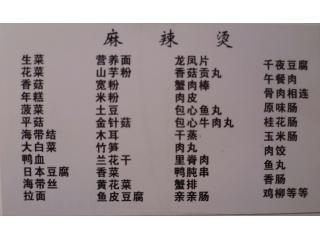 麻辣烫
生菜
花菜
香菇
年糕
菠菜
平菇
海带结
大白菜
鸭血
日本豆腐
海带丝
拉面
营养面
山芋粉
宽粉
米粉
土豆
金针菇
木耳
竹笋
兰花干
香菜
黄花菜
鱼皮豆腐
龙凤片
香菇贡丸
蟹肉棒
肉皮
包心鱼丸
包心牛肉丸
干蒸
肉丸
里脊肉
鸭肫串
蟹排
亲亲肠
千夜豆腐
午餐肉
骨肉相连
原味肠
桂花肠
玉米肠
肉饺
鱼丸
香肠
鸡柳等等